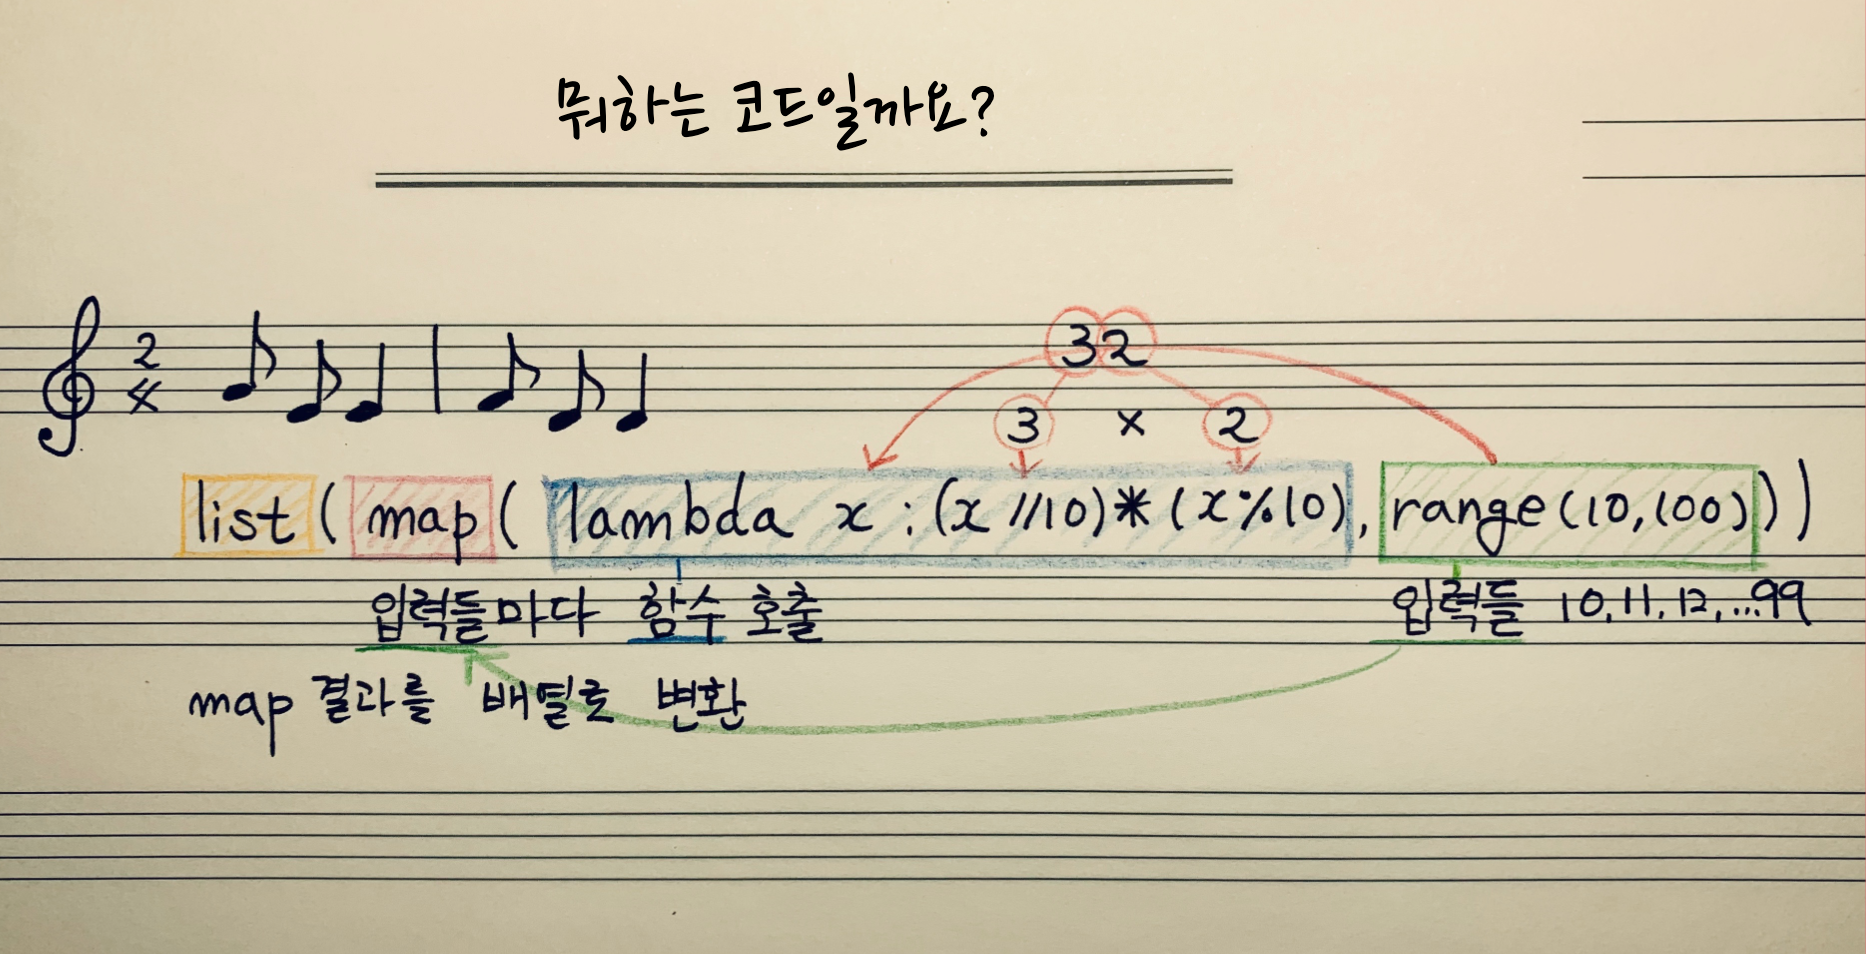 뭐하는 코드일까요?
2
4
32
3 × 2
list(map(lambda x:(x//10)*(x%10),range(10,100)))
입력들마다 함수 호출
입력들 10,11,12,...99
map 결과를 배열로 변환